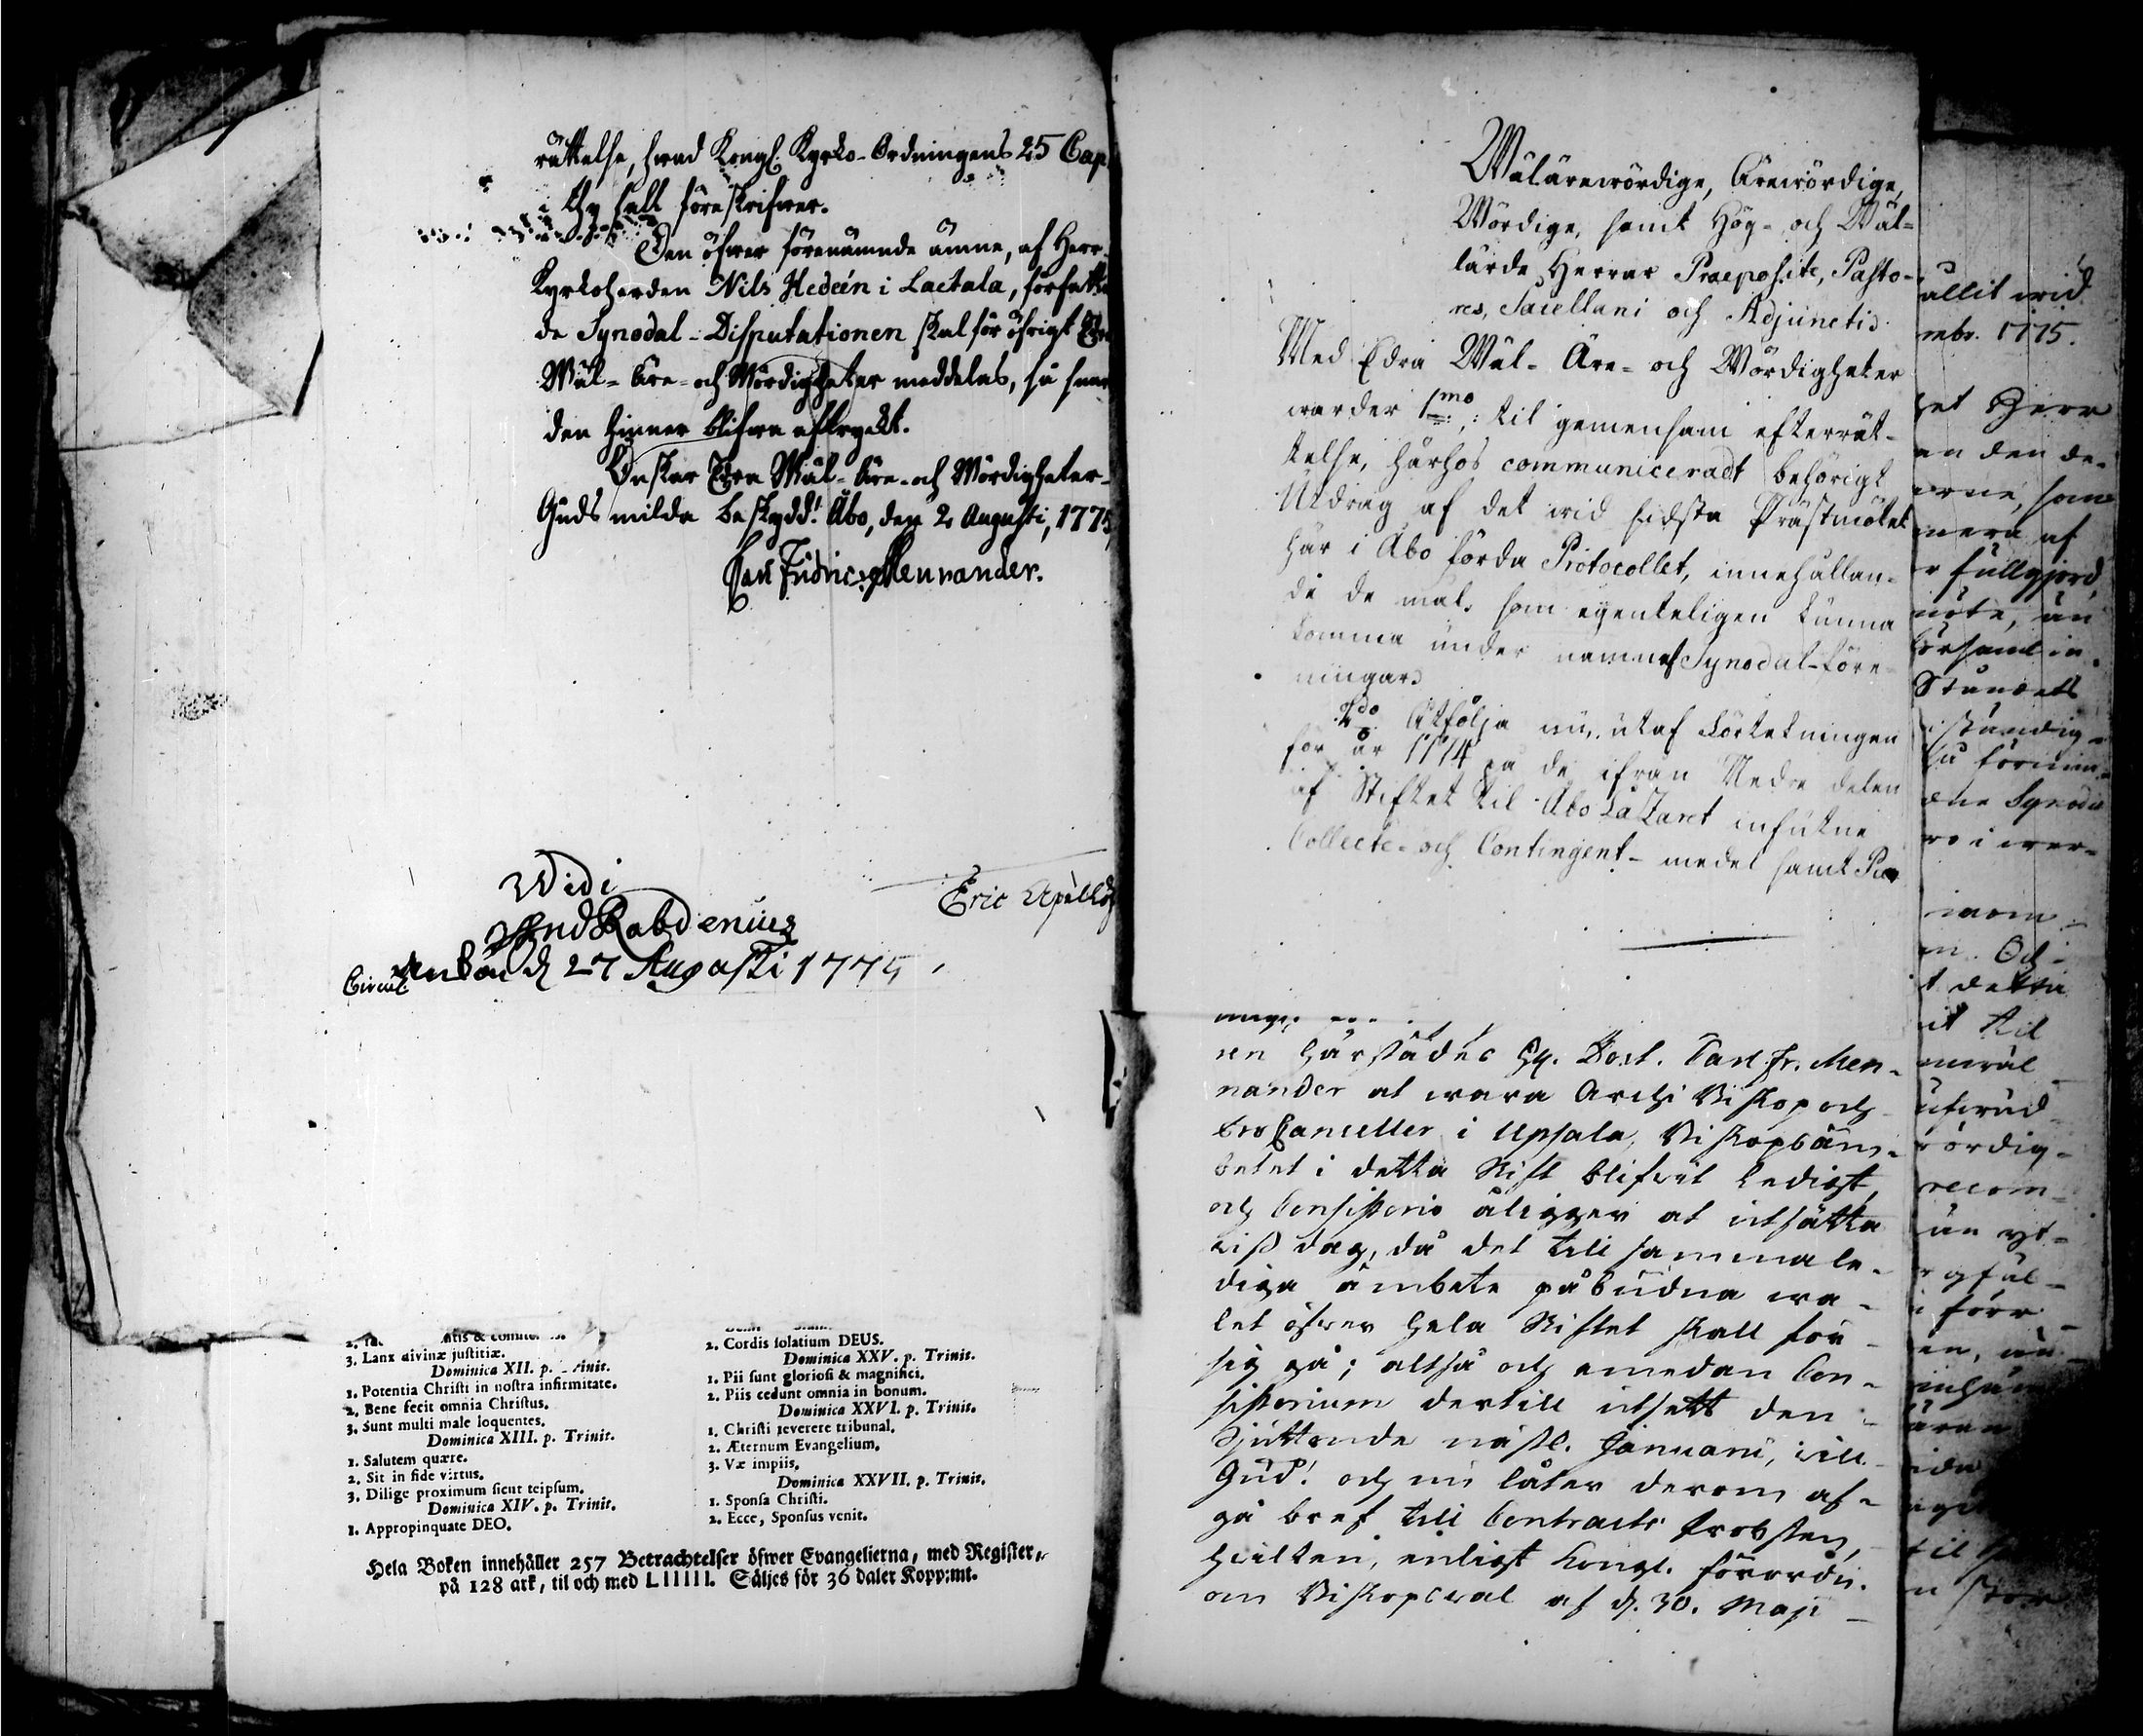 rättelse, hwad Kongl. Kyrko-Ordningens 25 Cap.
i thy fall föreskrifwer.
Den öfwer förenämnde ämne, af Herr
Kyrkoherden Nils Hedeén i Laetala, författa
de Synodal-Disputationen skal för öfrigt
Wäl- Äre- och Wördigheter meddelas, så snar
den hinner blifwa aftryckt.
Önskar Edra Wäl- Äre- och Wördigheter
Guds milda beskydd! Åbo, den 2 Augusti, 1775
Carl Fridric Mennander.
Widi
And Rabdenius
d 27 Augusti 1775
Circul.
Eric
3. Lanx divinæ justitiæ.
Dominica XII. p. Trinit.
1. Potentia Christi in nostra infirmitate.
2. Bene fecit omnia Christus.
3. Sunt multi male loquentes.
Dominica XIII. p. Trinit.
1. Salutem quære.
2. Sit in fide virtus.
3. Dilige proximum sicut teipsum.
Dominica XIV. p. Trinit.
1. Appropinquate DEO.
2. Cordis solatium DEUS.
Dominica XXV. p. Trinit.
1. Pii sunt gloriosi & magnifici.
2. Piis cedunt omnia in bonum.
Dominica XXVI. p. Trinit.
1. Christi reverere tribunal.
2. Æternum Evangelium.
3. Væ impiis.
Dominica XXVII. p. Trinit.
1. Sponsa Christi.
2. Ecce, Sponsus venit.
Hela Boken innehåller 257 Betrachtelser öfwer Evangelierna, med Register,
på 128 ark, til och med Llllll. Säljes för 36 daler Kopp:mt.
Wälärewördige, Ärewördige,
Wördige, samt Hög- och Wäl-
lärde Herrar Præposite, Pasto-
res, Sacellani och Adjuncti
Med Edra Wäl- Äre- och Wördigheter
warder 1mo: til gemensam efterrät-
telse, härhos communiceradt behörigt
Utdrag af det wid sidsta Prästmötet
här i Åbo förda Protocollet, innehållan-
de de mål, som egenteligen kunna
komma under namn af Synodal-före-
ningar.
2do Åtfölja nu, utaf Förtekningen
för år 1774 på de ifrån Nedre delen
af Stiftet til Åbo Lazaret influtne
Collecte- och Contingent- medel samt
ren härstädes Hr. Doct. Carl Fr. Men-
nander at wara Archi Biskop och
Pro Canceller i Upsala, Biskopsäm-
betet i detta Stift blifwit ledigt,
och Consistorio åligger at utsätta
wiss dag, då det till samma le-
diga ämbete påbudna wa-
let öfwer hela Stiftet skall för
sig gå; altså och emedan Con-
sistorium dertill utsett den
Sjuttonde näste Januarii, will
Gud! och nu låter derom af-
gå bref till Contracts Probsten,
hwilken, enligt Kongl. förordn.
om Biskopswal af d. 30. Maji
allit wid
mbr. 1775.
et Herr
en den de-
erne, som
mera af
r fullgjord
möte, än
Stundets
ständig-
ene Synoda
ro i wer-
inom
m. Och
t detta
it til
ördig-
recom-
än yt-
i förr
til